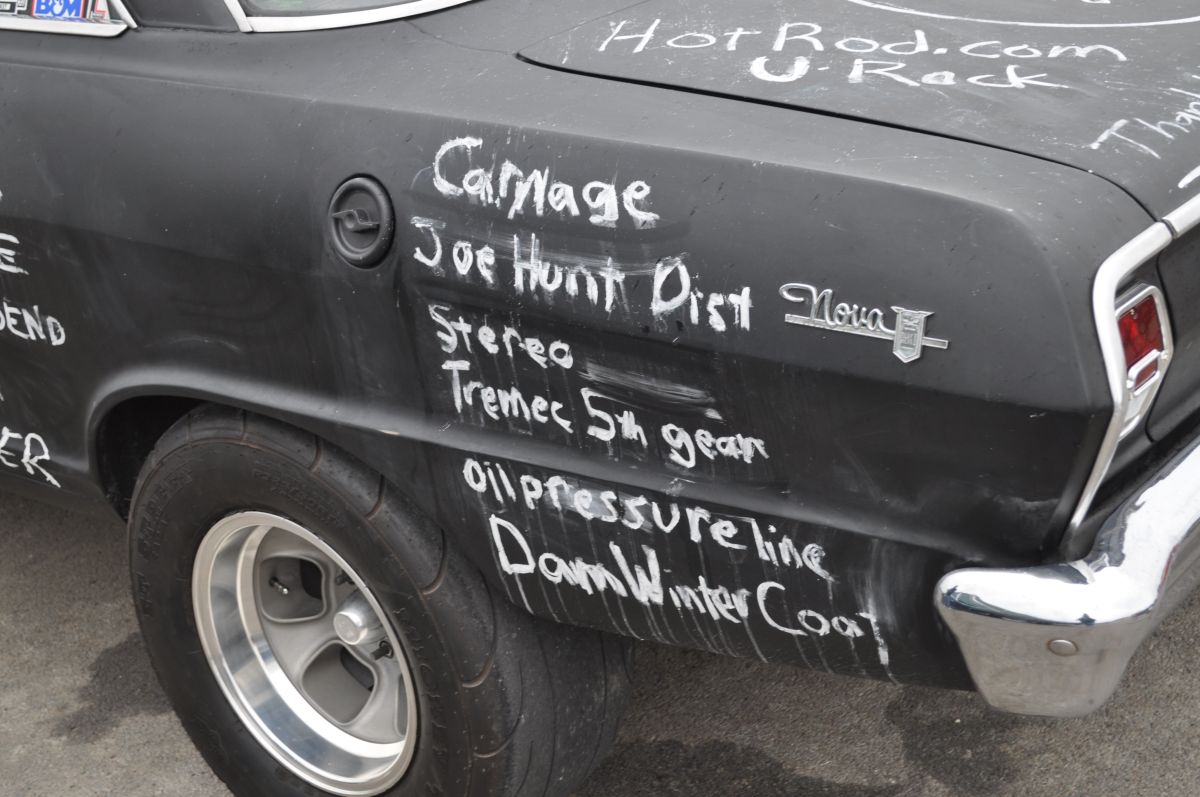 BOM
HotRod.com
U-Rock
Thank
Carnage
Joe Hunt Dist
Nova
Stereo
Tremec 5th gear
oil pressure line
Damn Winter Coat
E
DEND
ER